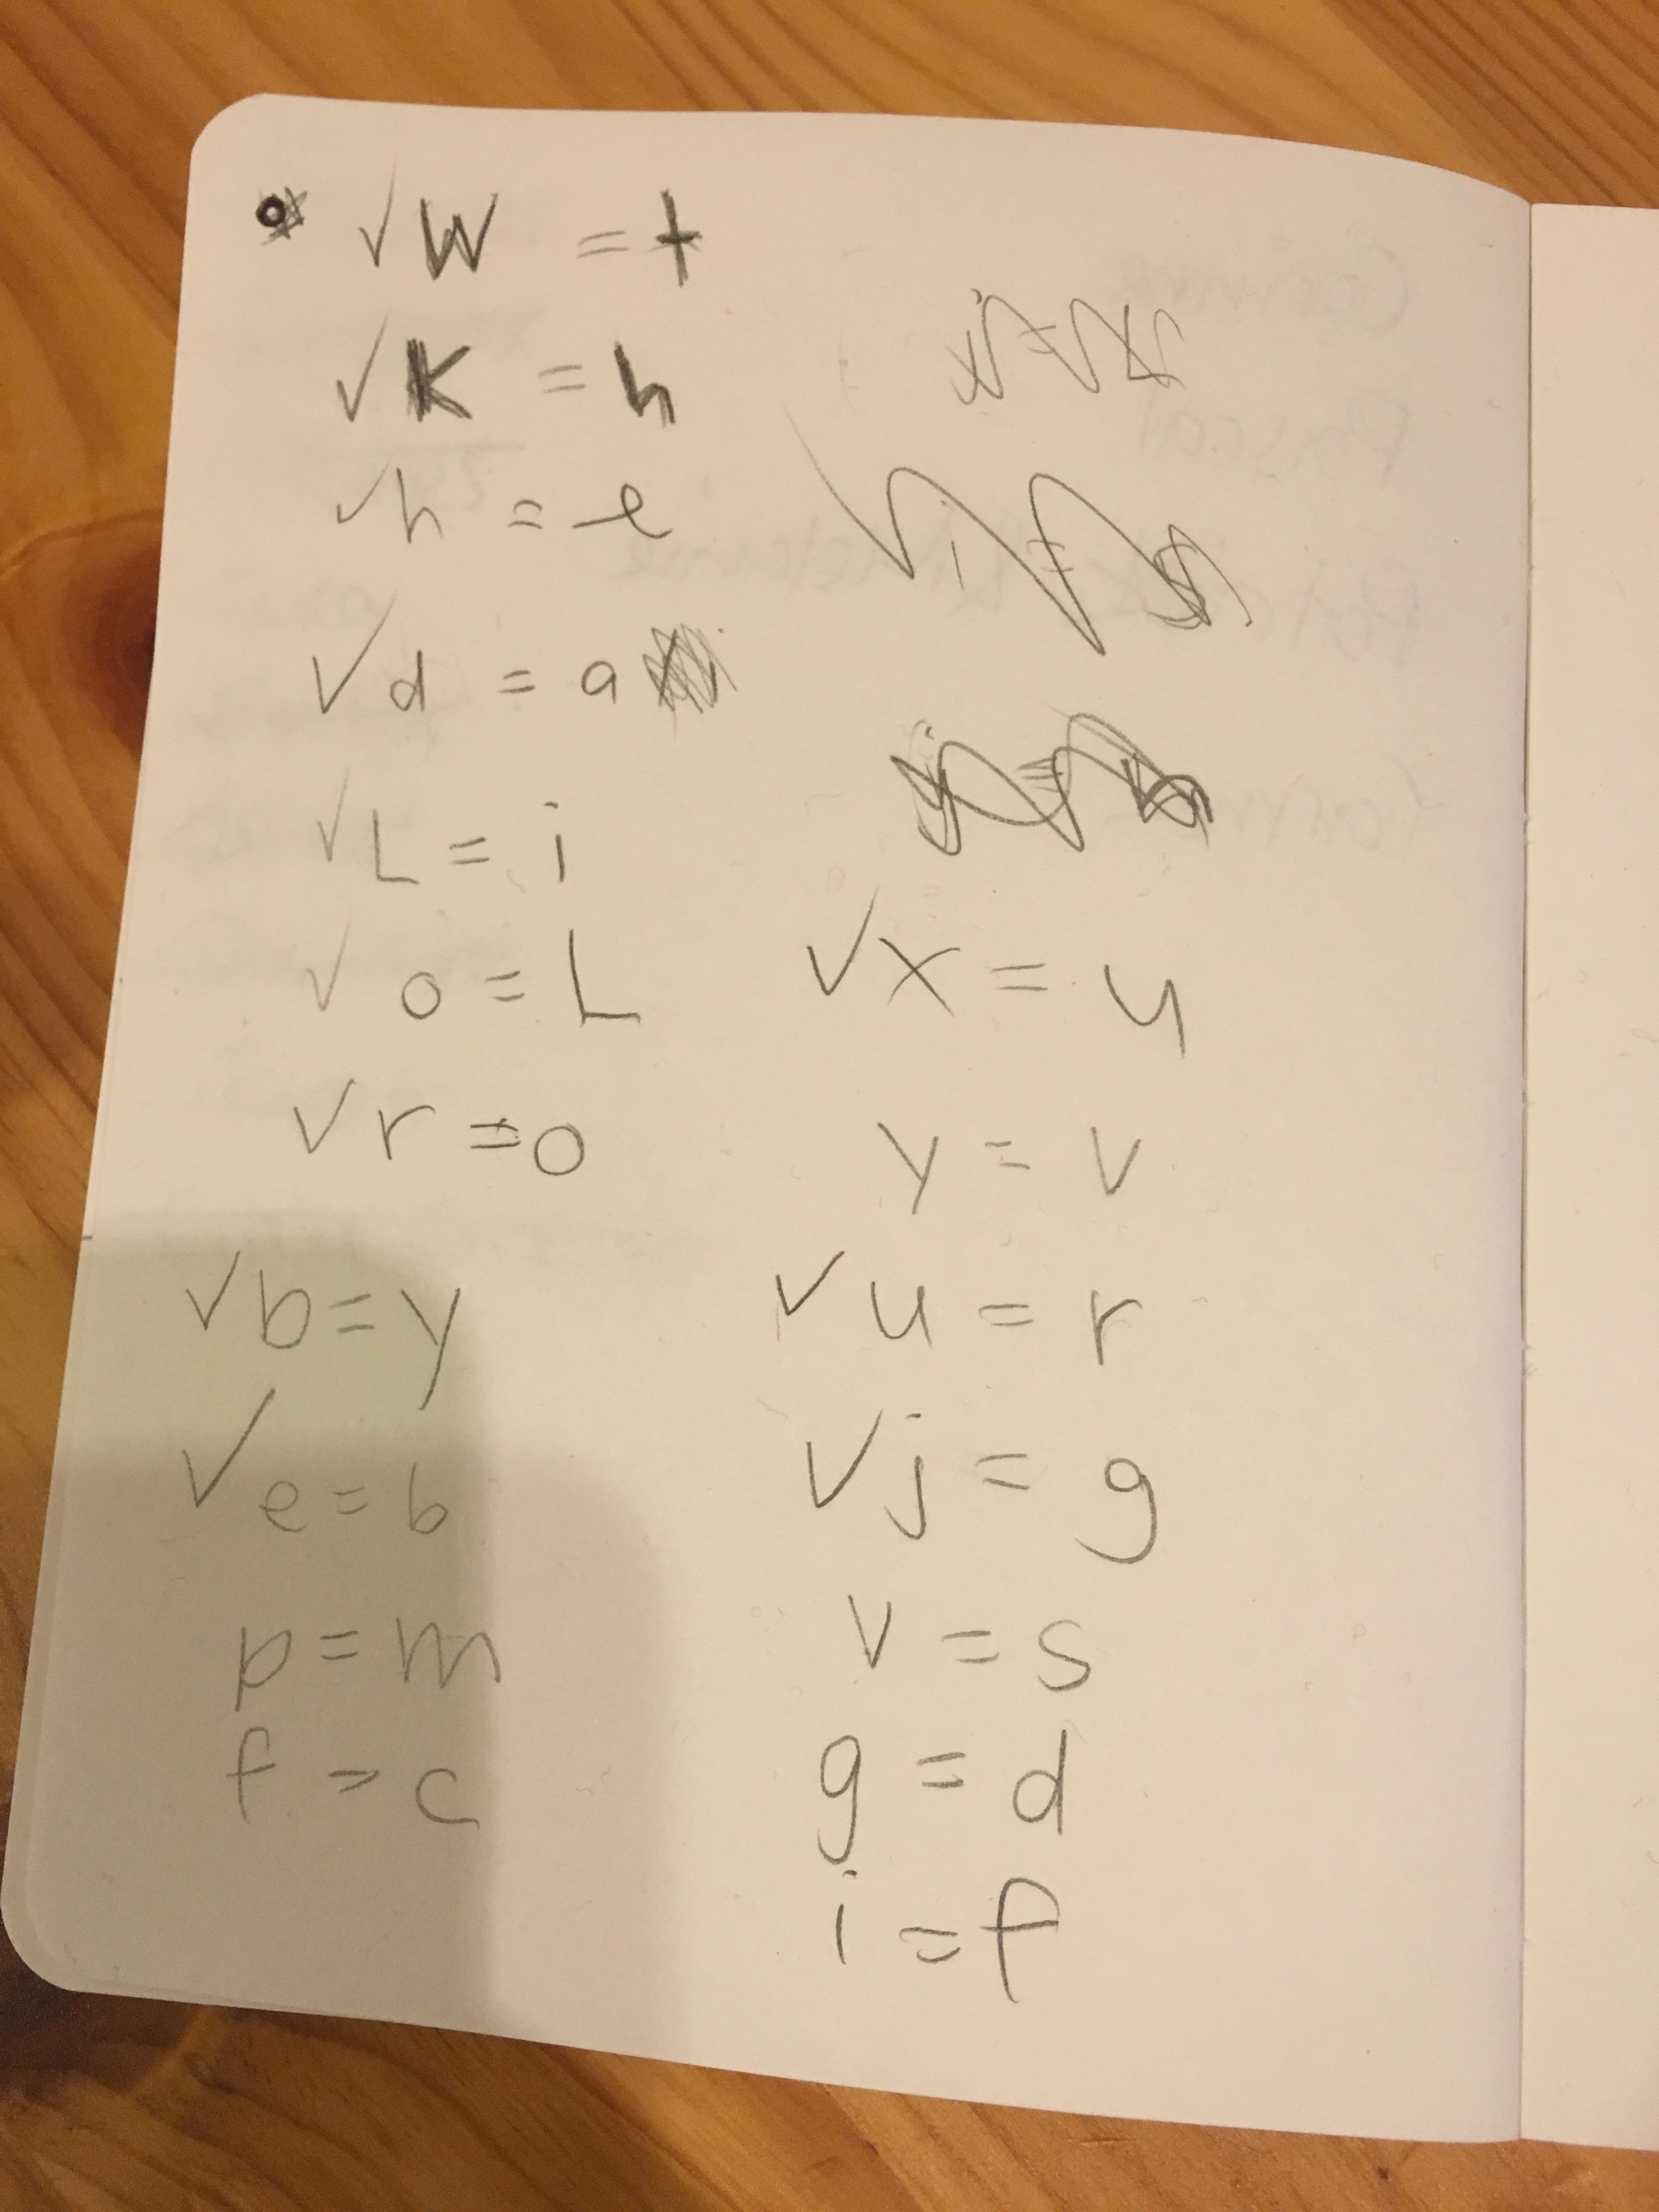 ✓ W = t
✓ K = h
✓ h = e
✓ d = a
✓ L = i
✓ o = L
✓ r = o
✓ b = y
✓ e = b
p = m
f = c
✓ x = u
y = v
✓ u = r
✓ j = g
v = s
g = d
i = f